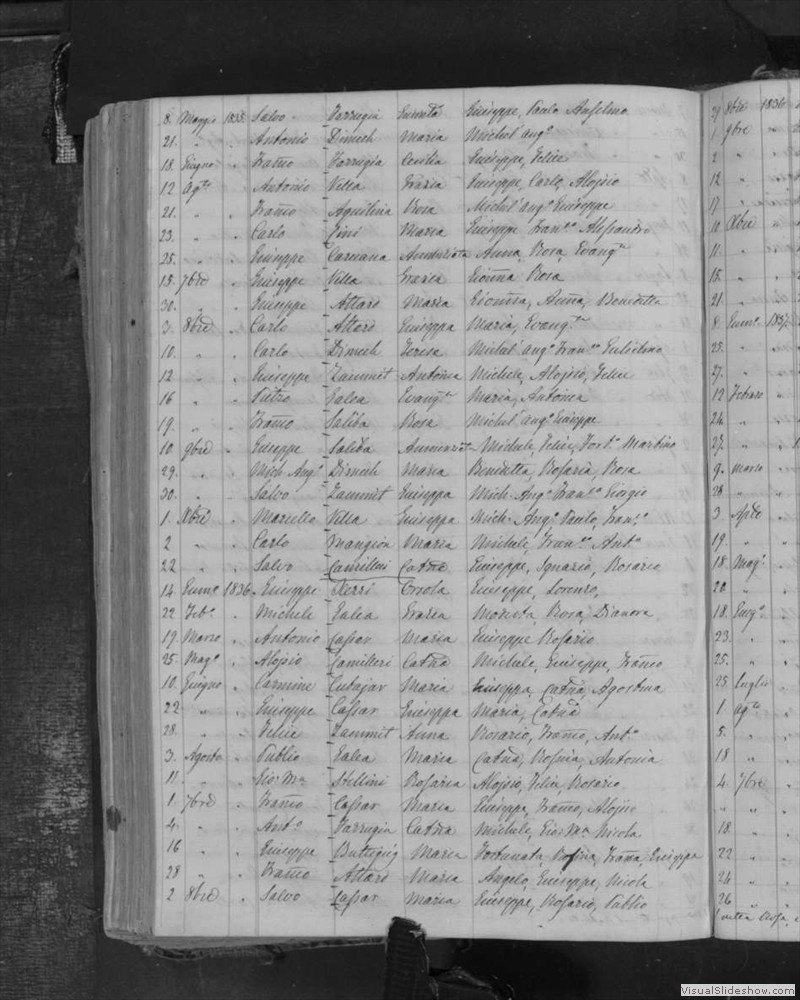 8. Maggio 1835. Salvo Farrugia Giuseppe, Paulo Anselmo
21. " " Antonio Dimech Maria Michel'ang.º
18. Giugno " Fran.co Farrugia Cecilia Giuseppe, Felice
12 Ag.to " Antonio Villa Grazia Giuseppe, Carlo, Aloisio
21. " " Fran.co Aquilina Rosa Michel'ang.º Giuseppe
23. " " Carlo Maria Giuseppe Fran.co Alessandro
25. " " Giuseppe Caruana Annunziata Anna, Rosa, Evang.ta
13. 7bre " Giuseppe Villa Grazia Rosa
30. " " Giuseppe Attard Maria Anna, Benedetta
3. 8bre " Carlo Attard Giuseppa Maria, Evang.ta
10. " " Carlo Dimech Teresa Michel'ang.º Fran.co
12 " " Giuseppe Zammit Antonia Michele, Aloisio, Felice
16 " " Pietro Galea Evang.ta Maria, Antonia
19. " " Fran.co Saliba Rosa Michel'ang.º Giuseppe
10. 9bre " Giuseppe Saliba Annunziata Michele, Felice, Fort.º Martino
29. " " Mich.Ang.º Dimech Maria Benedetta, Rosaria, Rosa
30. " " Salvo Zammit Giuseppa Mich.Ang.º Fran.co Giorgio
1. Xbre " Marcello Villa Giuseppa Mich.Ang.º Paulo, Fran.co
2 " " Carlo Mangion Maria Michele, Fran.co Ant.º
22 " " Salvo Camilleri Cat.na Giuseppe, Ignazio, Rosario
14. Genn.º 1836. Giuseppe Xerri Orsola Giuseppe, Lorenzo,
22 Feb.º " Michele Galea Grazia Modesta, Rosa, Dianora
19. Marzo " Antonio Cassar Maria Giuseppe Rosario
25. Mag.º " Aloisio Camilleri Cat.na Michele, Giuseppe, Fran.co
10. Giugno " Carmine Cutajar Maria Giuseppa, Cat.na, Agostina
22. " " Giuseppe Cassar Giuseppa Maria, Cat.na
28. " " Felice Zammit Anna Rosario, Fran.co, Ant.º
3. Agosto " Publio Galea Maria Cat.na, Rosina, Antonia
11. " " Gio:Ma Stellini Rosaria Aloisio, Felice, Rosario
1. 7bre " Fran.co Cassar Maria Giuseppe, Fran.co, Aloisio
4. " " Ant.º Farrugia Cat.na Michele, Gio:Ma Nicola
16 " " Giuseppe Buttigieg Maria Fortunata, Rosina, Fran.ca, Giuseppa
28 " " Fran.co Attard Maria Angelo, Giuseppe, Nicola
2 8bre " Salvo Cassar Maria Giuseppe, Rosario, Publio
29 8bre 1836
1 9bre "
2 " "
12 " "
17 " "
10 Xbre "
11. " "
15. " "
21. " "
8. Genn.º 1837.
25. "
27. "
12 Febraro
24. "
27. "
9. Marzo
28 "
3 Aple
19. "
18 Mag.º
20 "
18. Giug.º
23. "
25. "
25. Luglio
1. Ag.to
5. "
18 "
4. 7bre
" "
18. "
22 "
24 "
26 "
VisualSlideshow.com